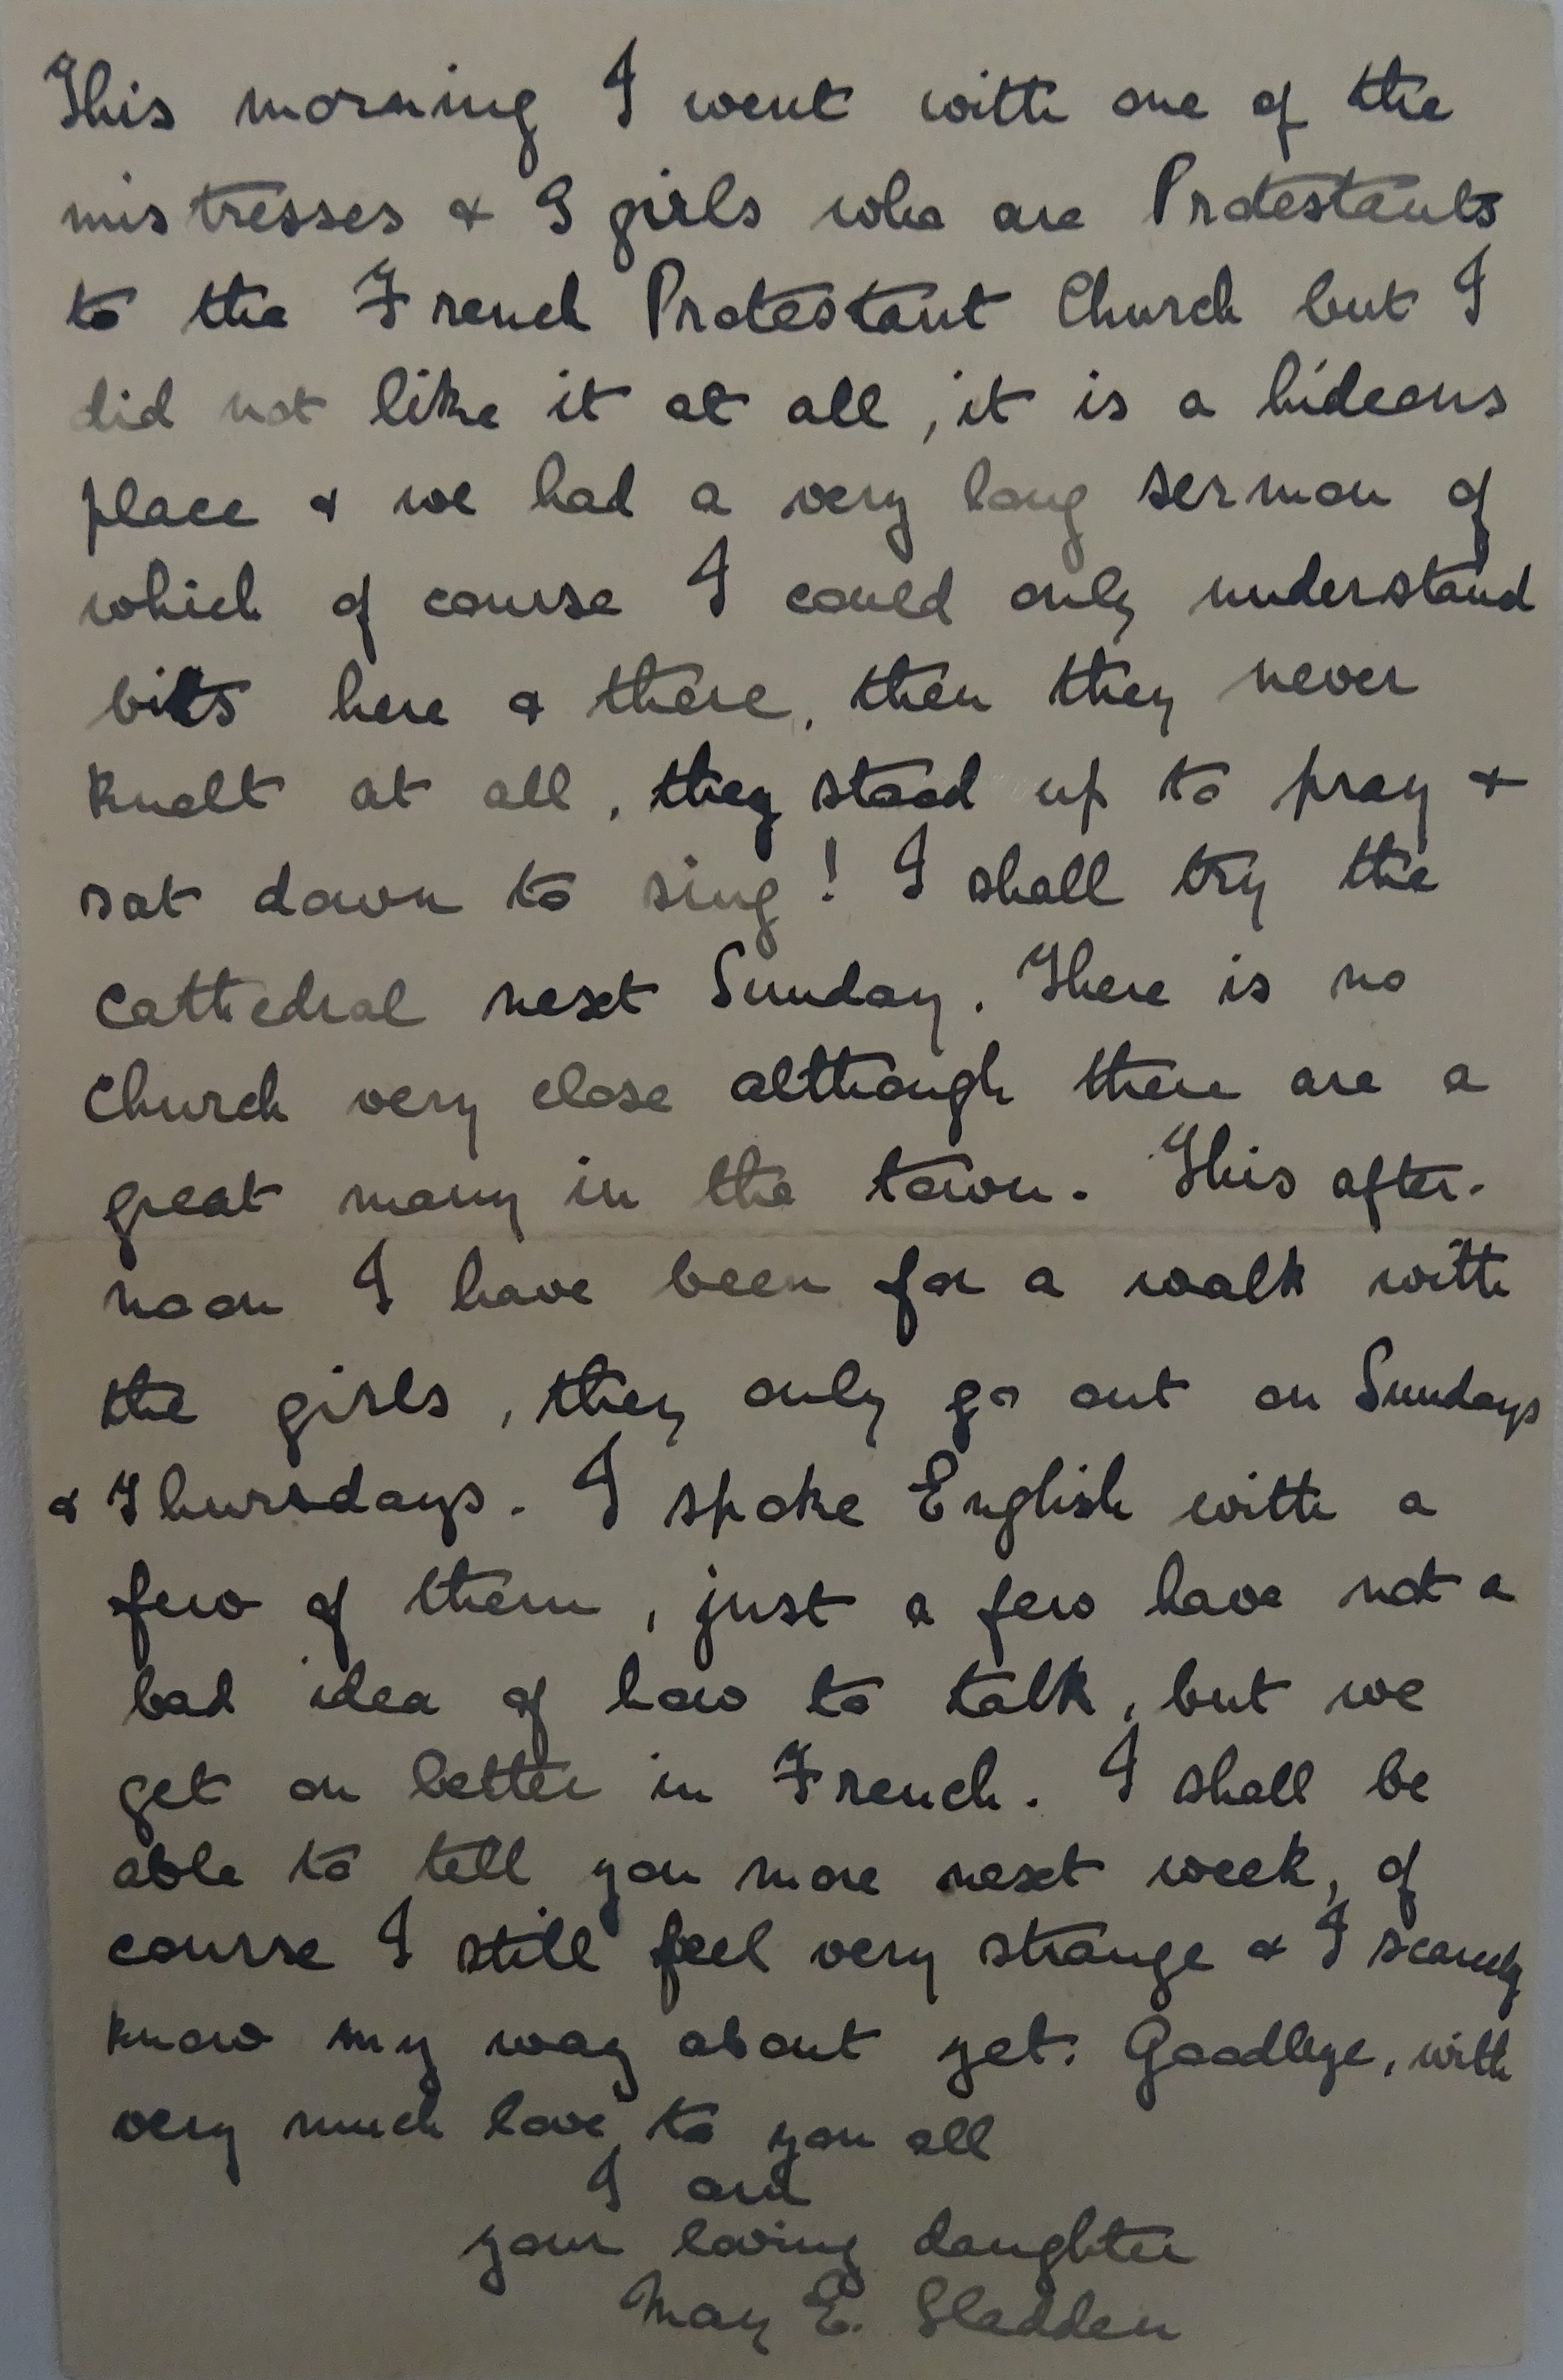 This morning I went with one of the
mistresses & 9 girls who are Protestants
to the French Protestant Church but I
did not like it at all, it is a hideous
place & we had a very long sermon of
which of course I could only understand
bits here & there, then they never
knelt at all, they stood up to pray &
sat down to sing! I shall try the
Cathedral next Sunday. There is no
Church very close although there are a
great many in the town. This after-
noon I have been for a walk with
the girls, they only go out on Sundays
& Thursdays. I spoke English with a
few of them, just a few have not a
bad idea of how to talk, but we
get on better in French. I shall be
able to tell you more next week, of
course I still feel very strange & I scarcely
know my way about yet. Goodbye, with
very much love to you all
I am
your loving daughter
May E. Sladden